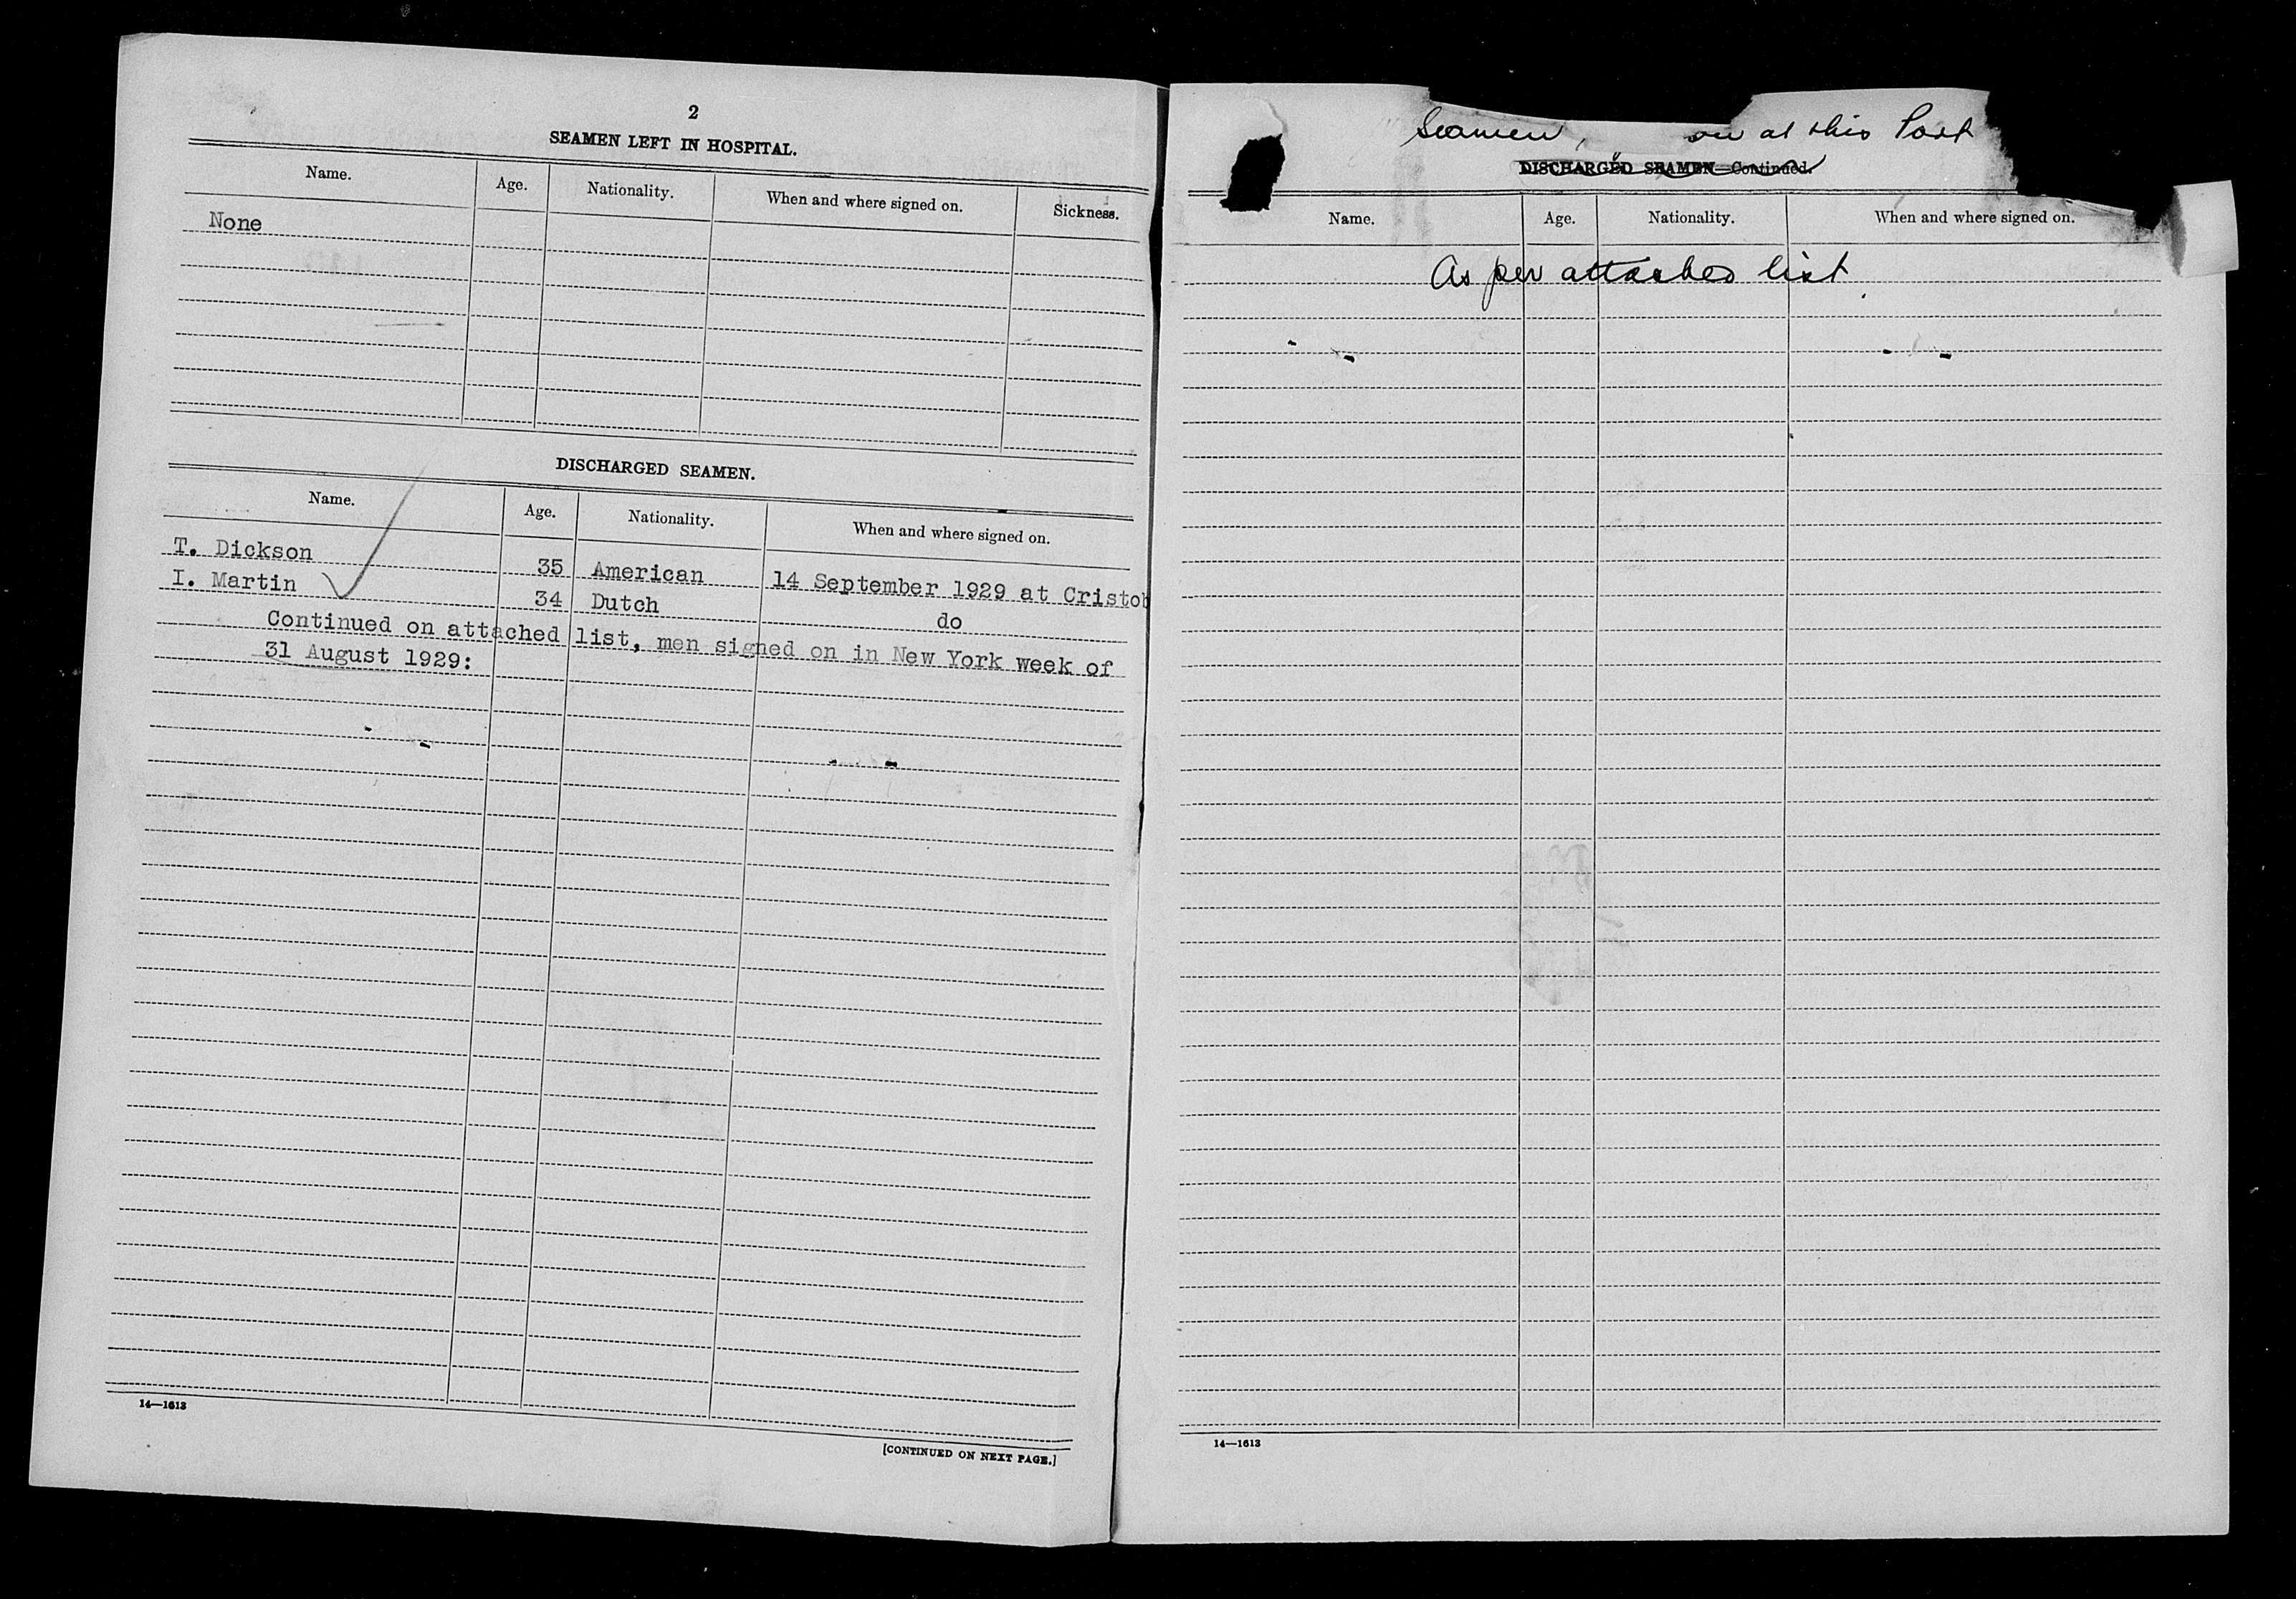 2
SEAMEN LEFT IN HOSPITAL.
Name. Age. Nationality. When and where signed on. Sickness.
None
DISCHARGED SEAMEN.
Name. Age. Nationality. When and where signed on.
T. Dickson 35 American 14 September 1929 at Cristob
I. Martin 34 Dutch do
Continued on attached list, men signed on in New York week of
31 August 1929:
14—1613
[CONTINUED ON NEXT PAGE.]
Seamen, on at this Port
DISCHARGED SEAMEN—Continued.
Name. Age. Nationality. When and where signed on.
As per attached list
14—1613